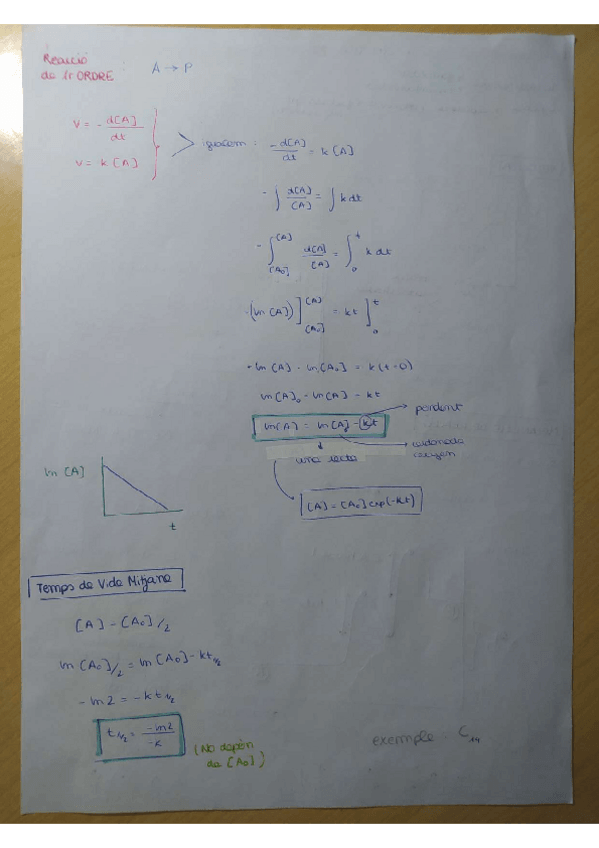 Reacció
de 1r ORDRE: A → P
v = - d[A]/dt
v = k [A]
igualem: -d[A]/dt = k [A]
- ∫ d[A]/[A] = ∫ k dt
- ∫_[A₀]^[A] d[A]/[A] = ∫_0^t k dt
-(ln [A]) ]_[A₀]^[A] = kt ]_0^t
- ln [A] - ln [A₀] = k (t - 0)
ln [A]₀ - ln [A] - kt
ln [A] = ln [A]₀ - kt
pendent
ordenada
origen
una recta
[A] = [A₀] exp (-kt)
ln [A]
t
Temps de Vida Mitjana
[A] - [A₀]/2
ln [A₀]/2 = ln [A₀] - kt 1/2
- ln 2 = - k t 1/2
t 1/2 = -ln2/-k
(No depèn
de [A₀])
exemple: C₁₄